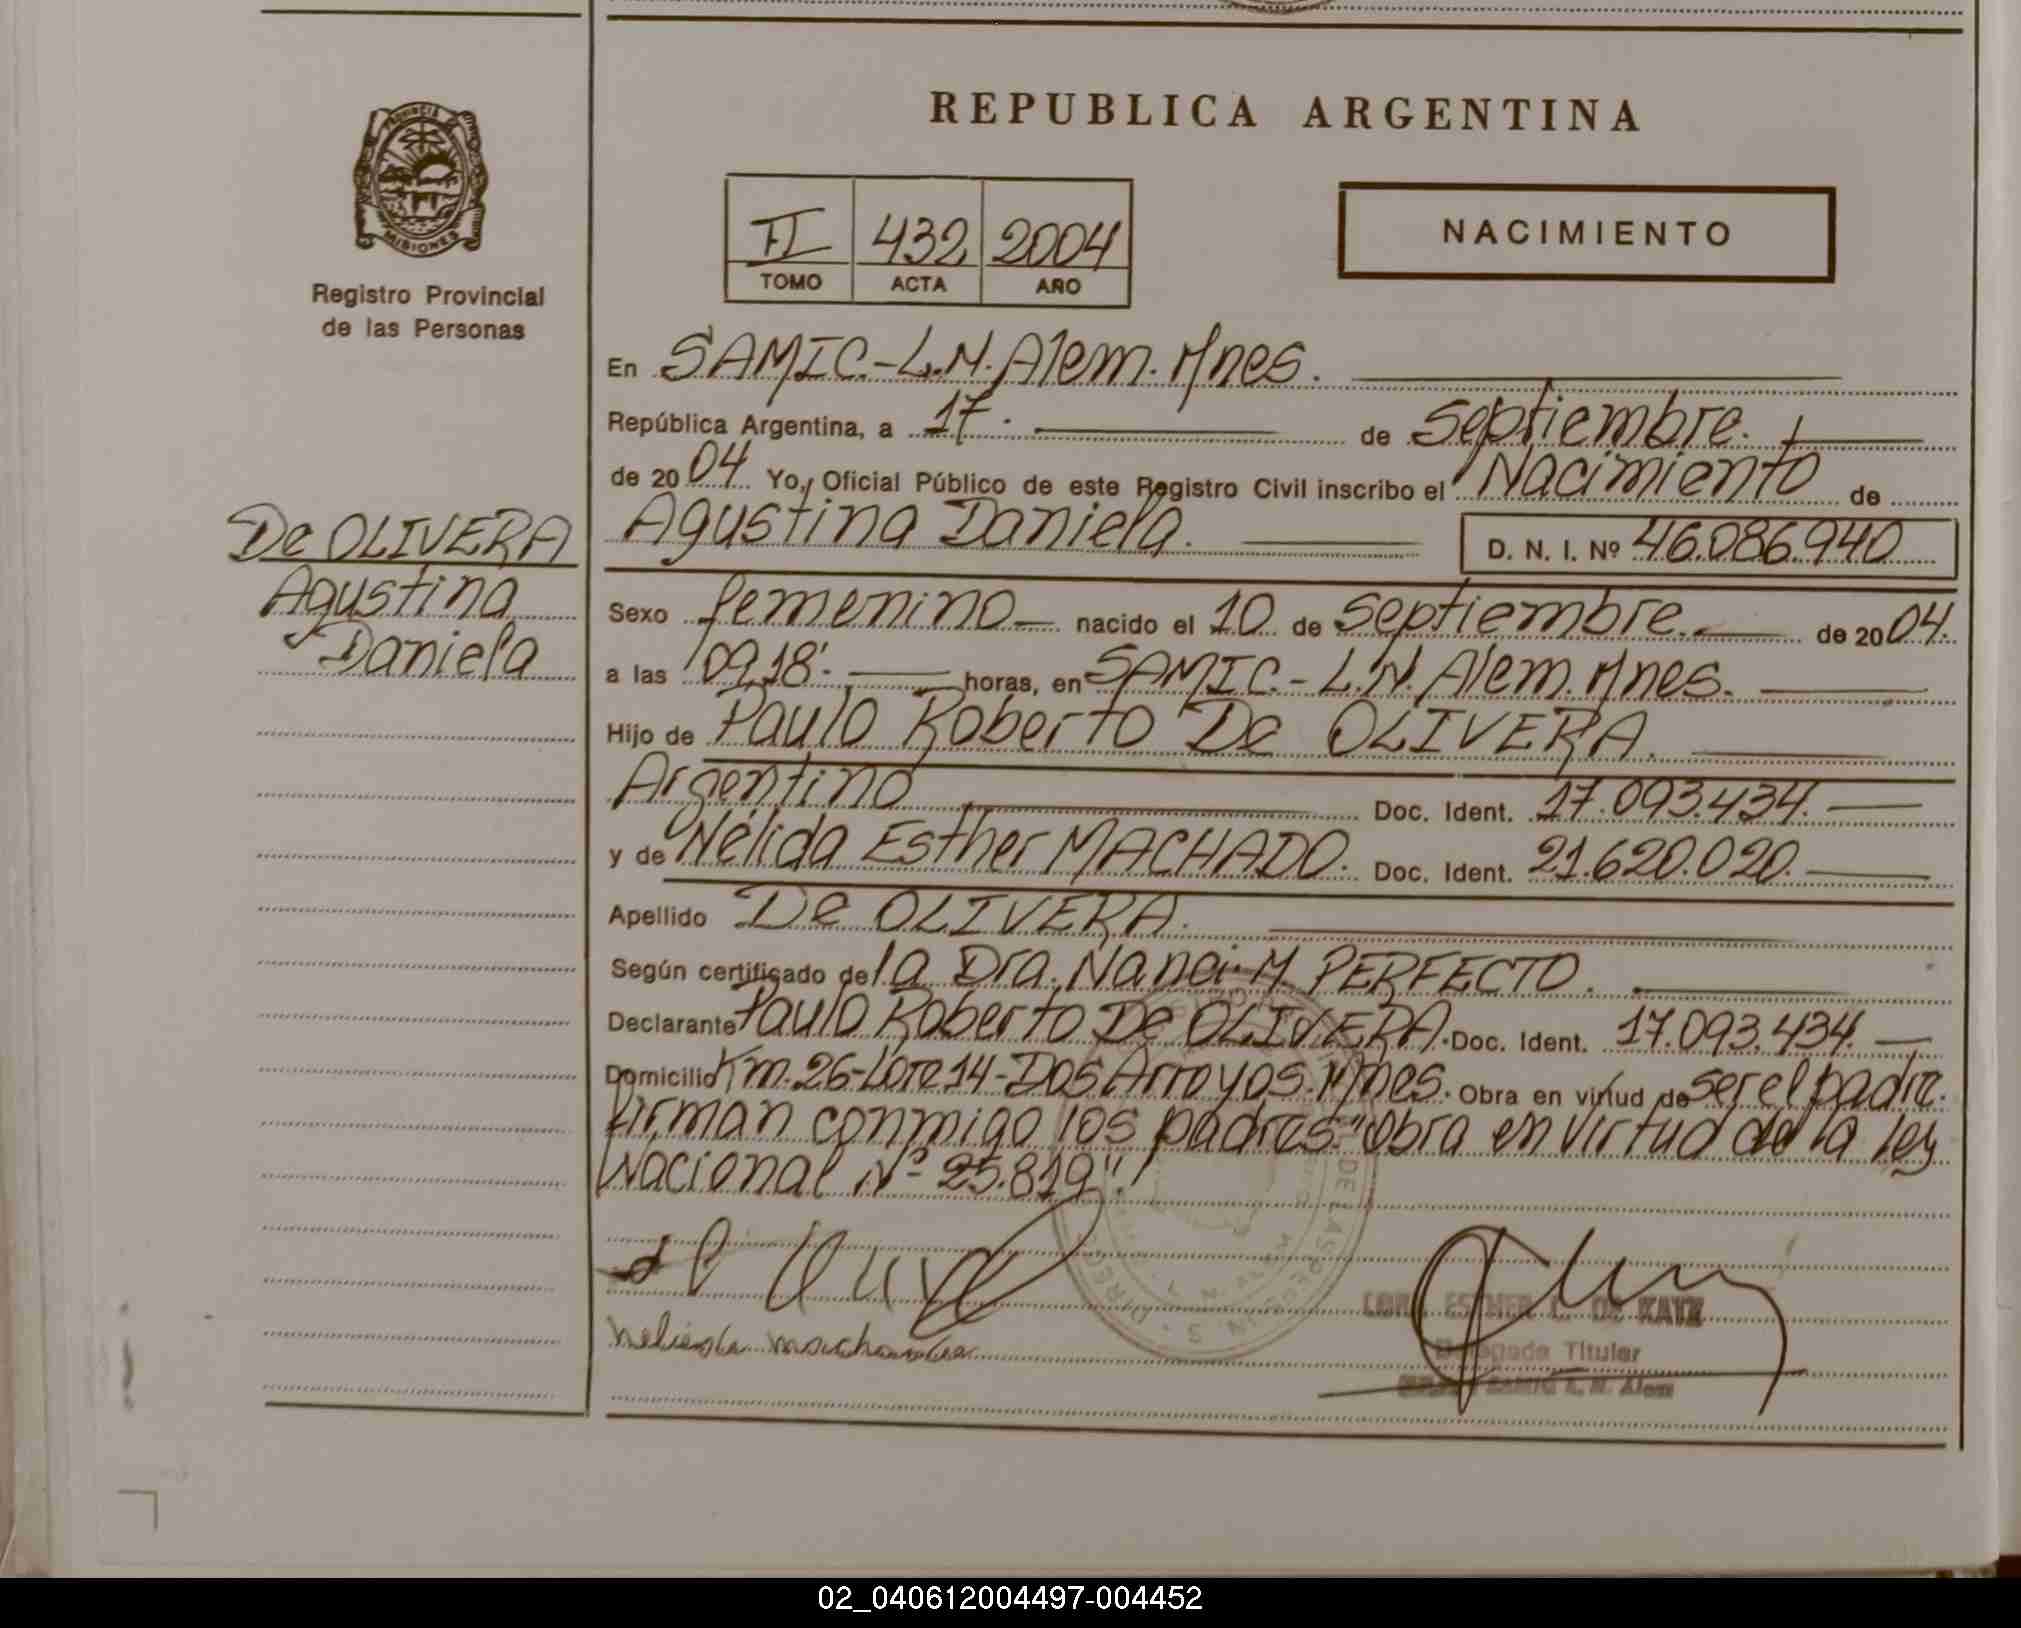 REPUBLICA ARGENTINA
PROVINCIA DE
MISIONES
Registro Provincial
de las Personas
II 432 2004
TOMO ACTA AÑO
NACIMIENTO
En SAMIC.-L.N.Alem.Mnes.
República Argentina, a 17. de Septiembre.
de 2004 Yo, Oficial Público de este Registro Civil inscribo el Nacimiento de
Agustina Daniela. D. N. I. Nº 46.086.940
De OLIVERA
Agustina
Daniela
Sexo femenino nacido el 10 de Septiembre. de 2004.
a las 09,18'. horas, en SAMIC.-L.N.Alem.Mnes.
Hijo de Paulo Roberto De OLIVERA.
Argentino Doc. Ident. 17.093.434.
y de Nélida Esther MACHADO. Doc. Ident. 21.620.020.
Apellido De OLIVERA.
Según certificado de la Dra. Nanci.M. PERFECTO.
Declarante Paulo Roberto De OLIVERA. Doc. Ident. 17.093.434.
Domicilio Km.26-Lote 14-Dos Arroyos.Mnes. Obra en virtud de ser el padre.
firman conmigo los padres."Obra en virtud de la ley
Nacional Nº 25.819".
ESTHER DE KATZ
Delegada Titular
SAMIC L. N. Alem
02_040612004497-004452